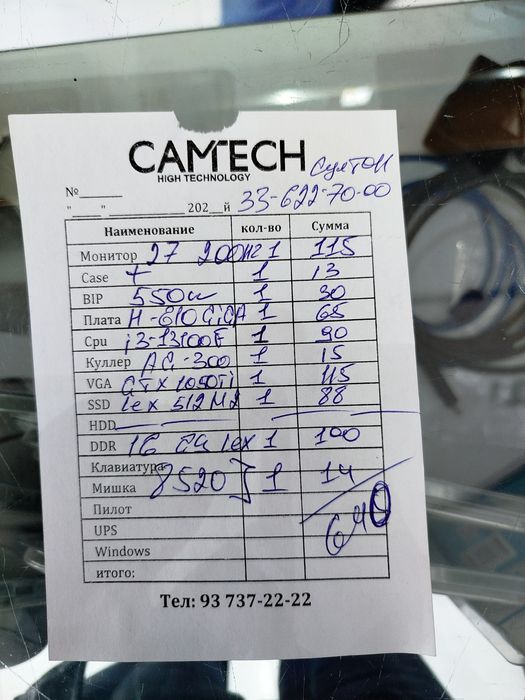 CAMTECH
HIGH TECHNOLOGY
Султон
№______
33-622-70-00
"____"____________202__й
Наименование кол-во Сумма
Монитор 27 200Hz 1 115
Case + 1 13
BIP 550w 1 30
Плата H-810 GiGA 1 65
Cpu i3-13100F 1 90
Куллер AG-300 1 15
VGA GTX 1050Ti 1 115
SSD lex 512 M2 1 88
HDD
DDR 16 lex 1 100
Клавиатура
8520 1 14
Мишка
Пилот
640
UPS
Windows
итого:
Тел: 93 737-22-22